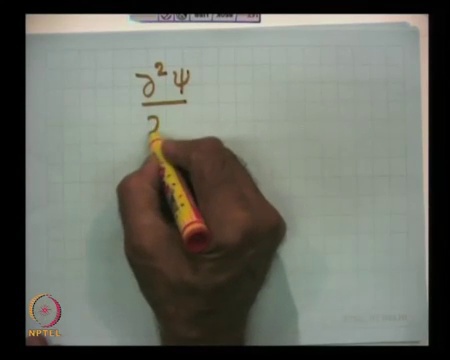 ∂²ψ
∂
NPTEL